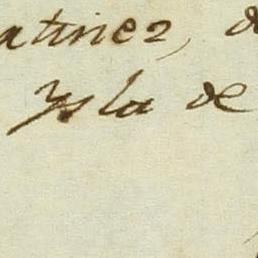 atinez, d
Ysla de